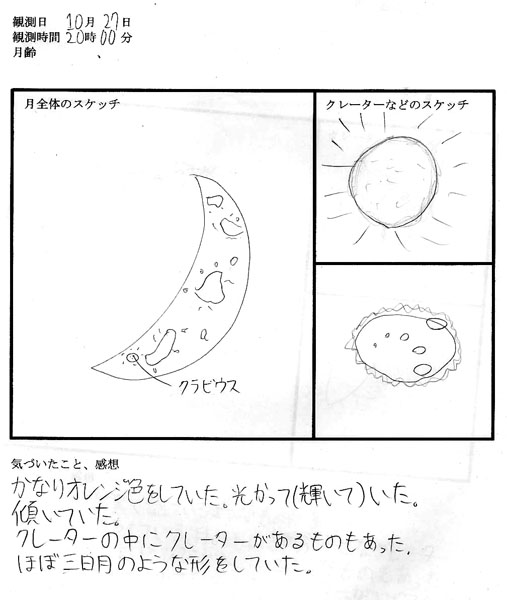 観測日 10月27日
観測時間 20時00分
月齢 、
月全体のスケッチ
クレーターなどのスケッチ
クラビウス
気づいたこと、感想
かなりオレンジ色をしていた。光かって(輝いて)いた。
傾いていた。
クレーターの中にクレーターがあるものもあった。
ほぼ三日月のような形をしていた。